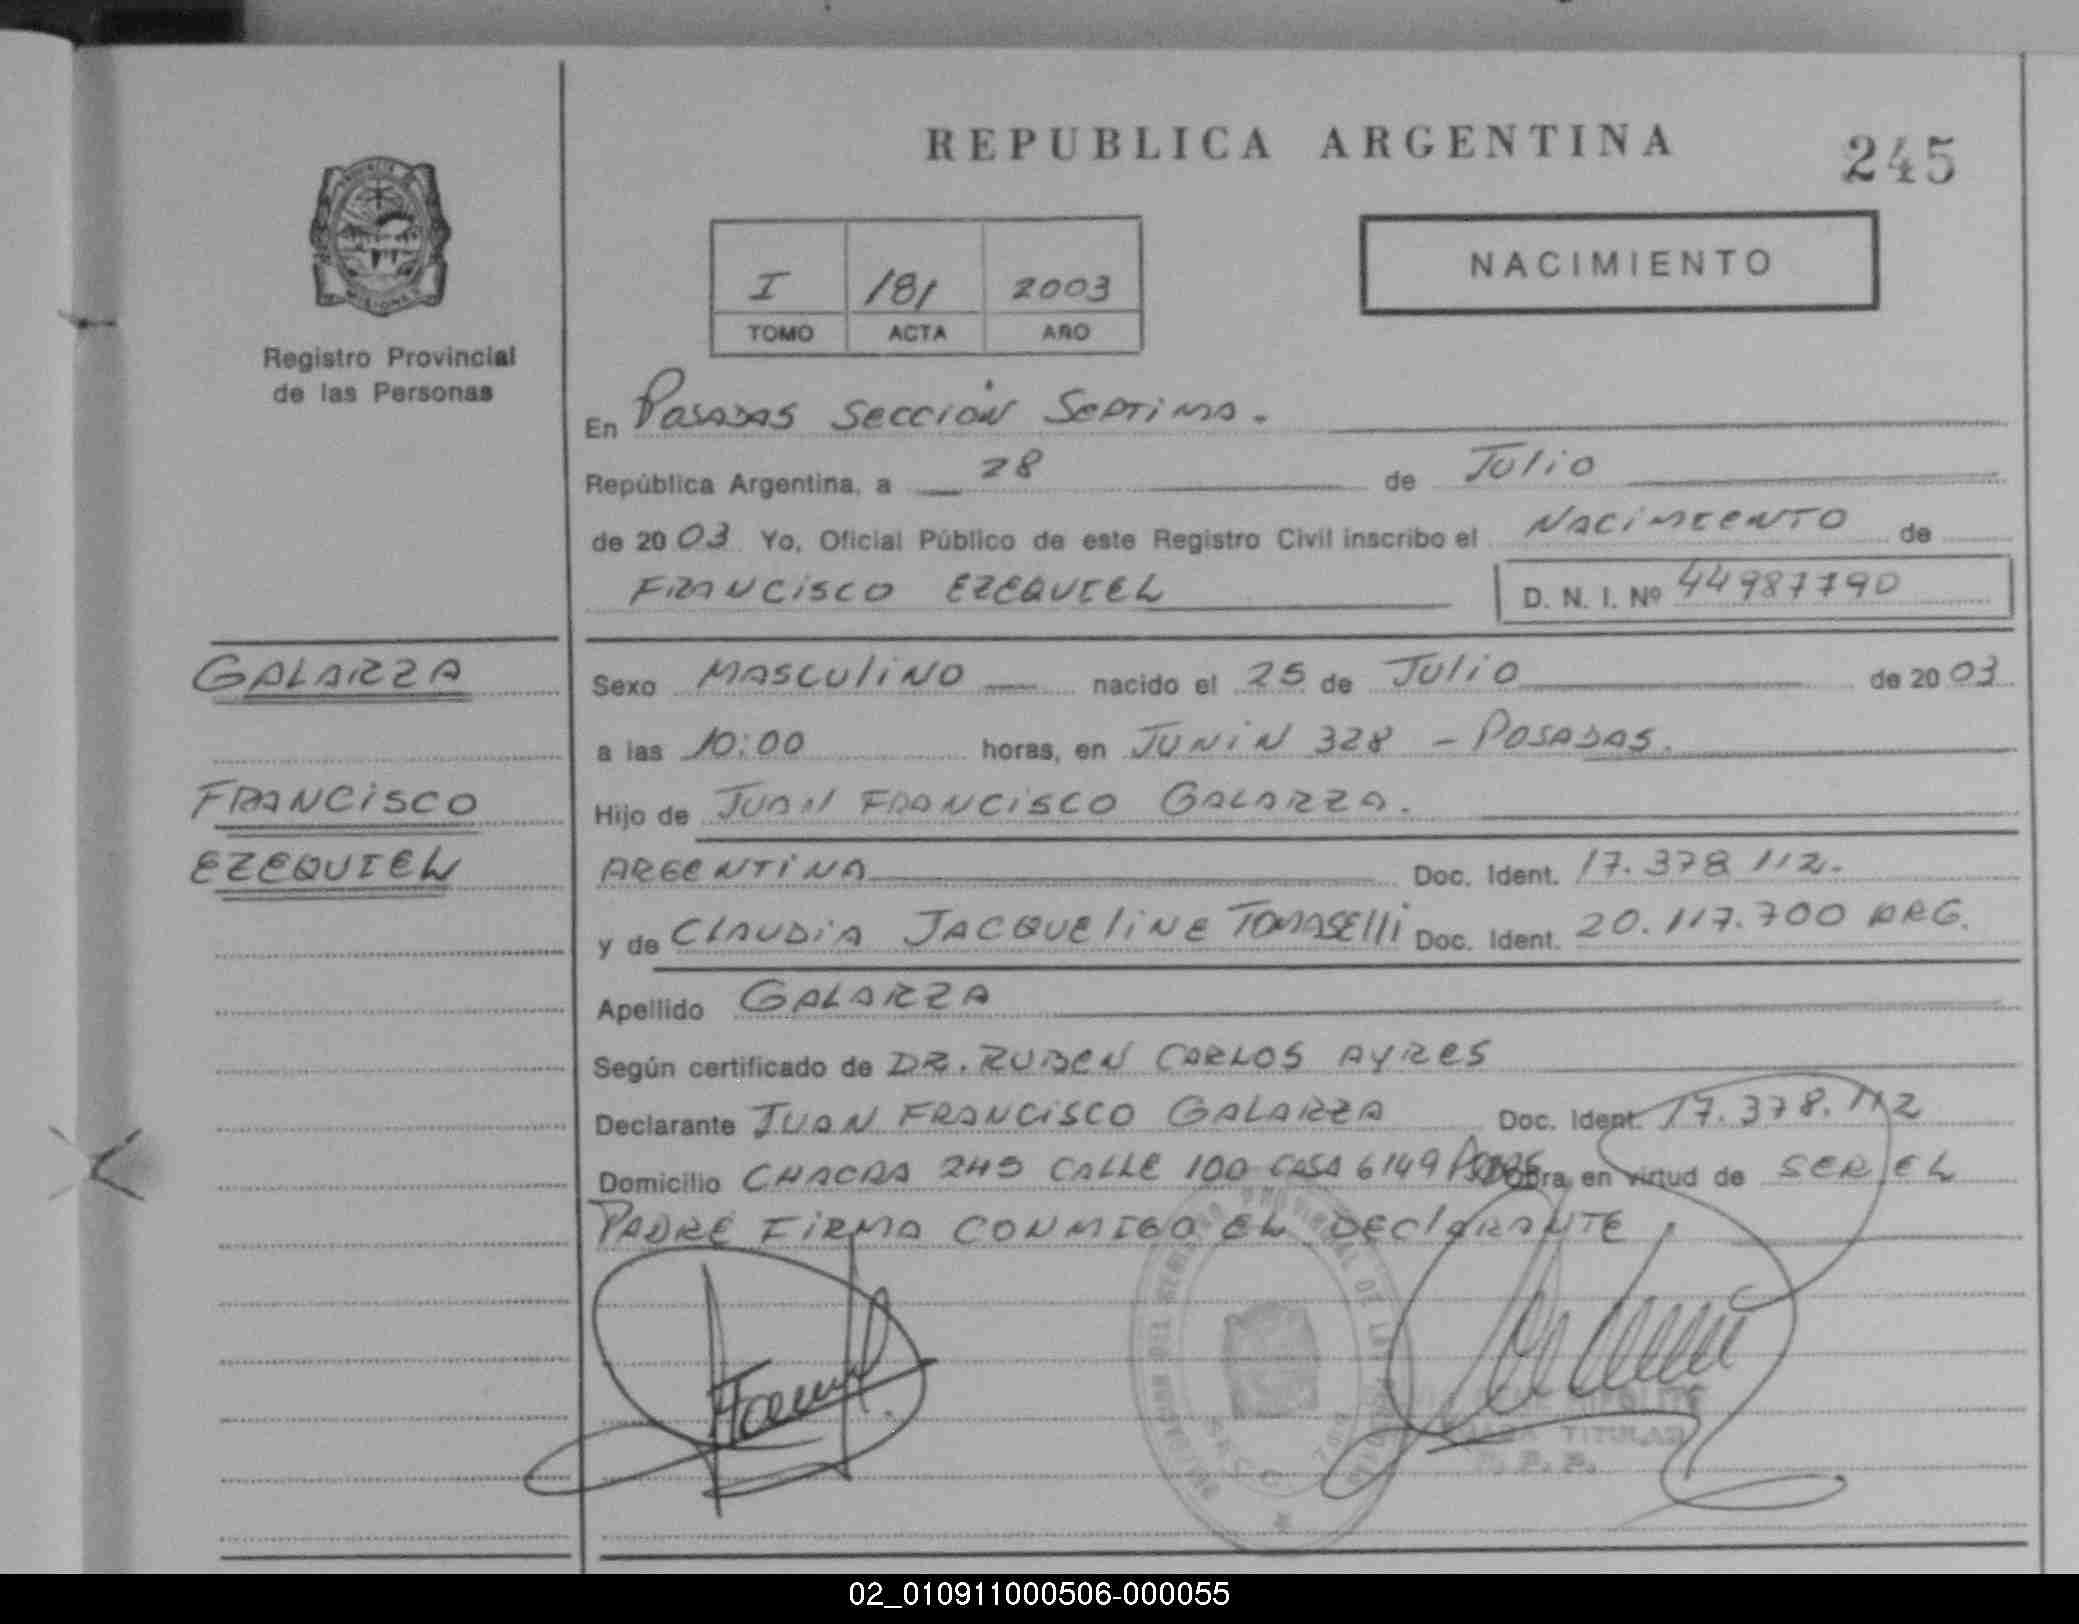 REPUBLICA ARGENTINA
245
NACIMIENTO
I 181 2003
TOMO ACTA AÑO
Registro Provincial
de las Personas
En Posadas Sección Septima.
República Argentina, a 28 de Julio
de 2003 Yo, Oficial Público de este Registro Civil inscribo el Nacimiento de
FRANCISCO EZEQUIEL D. N. I. Nº 44987790
GALARZA
FRANCISCO
EZEQUIEL
Sexo MASCULINO nacido el 25 de Julio de 2003
a las 10:00 horas, en JUNIN 328 - POSADAS.
Hijo de JUAN FRANCISCO GALARZA.
ARGENTINA Doc. Ident. 17.378 112.
y de CLAUDIA JACQUELINE TOMASELLI Doc. Ident. 20.117.700 ARG.
Apellido GALARZA
Según certificado de DR. RUBEN CARLOS AYRES
Declarante JUAN FRANCISCO GALARZA Doc. Ident. 17.378.112
Domicilio CHACRA 245 CALLE 100 CASA 6149 Obra en virtud de SER EL
PADRE FIRMA CONMIGO EL DECLARANTE
TITULAR
02_010911000506-000055